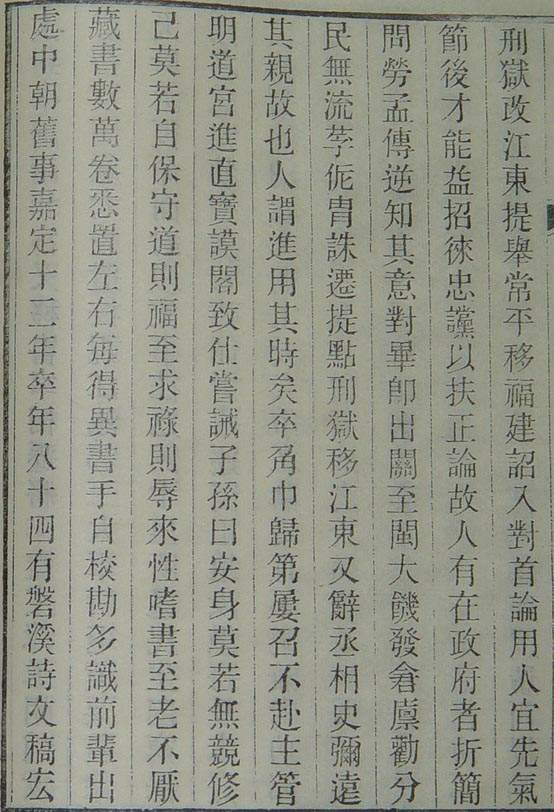 刑獄改江東提舉常平移福建詔入對首論用人宜先氣
節後才能益招徠忠讜以扶正論故人有在政府者折簡
問勞孟傳逆知其意對畢卽出關至閩大饑發倉廩勸分
民無流莩侂胄誅遷提點刑獄移江東又辭丞相史彌遠
其親故也人謂進用其時矣卒角巾歸第屢召不赴主管
明道宮進直寶謨閣致仕嘗誡子孫曰安身莫若無競修
己莫若自保守道則福至求祿則辱來性嗜書至老不厭
藏書數萬卷悉置左右每得異書手自校勘多識前輩出
處中朝舊事嘉定十二年卒年八十四有磐溪詩文稿宏